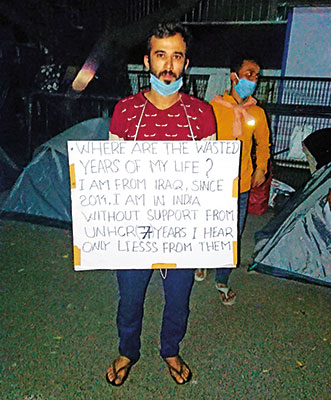 • WHERE ARE THE WASTED
YEARS OF MY LIFE?
I AM FROM IRAQ, SINCE
2014, I AM IN INDIA
WITHOUT SUPPORT FROM
UNHCR 7 YEARS I HEAR
ONLY LIESSS FROM THEM